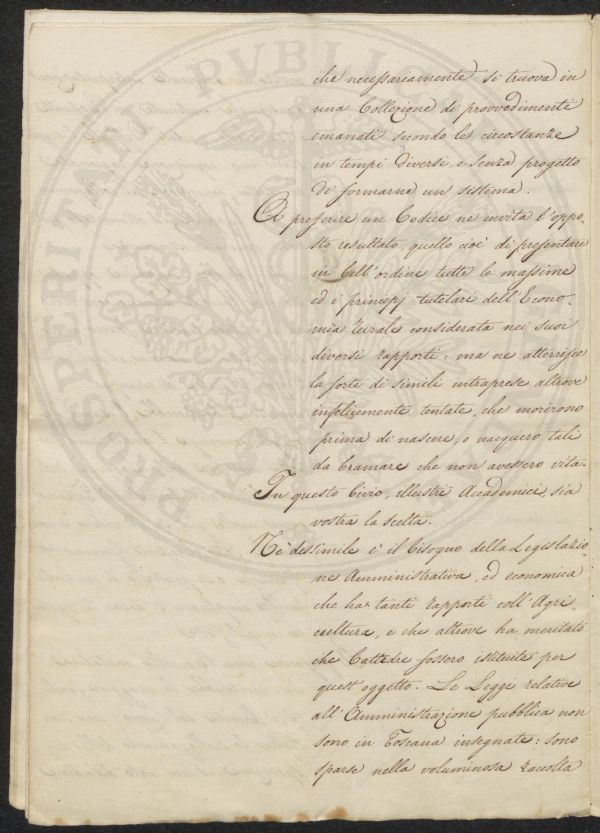 che necessariamente si truova in
una Collezione di provvedimenti
emanati secondo le circostanze
in tempi diversi, e senza progetto
di formarne un sistema.
A preferire un Codice ne invita l'oppo-
sto resultato, quello cioè di presentare
in bell'ordine tutte le massime
ed i principj tutelari dell'Econo-
mia Rurale considerata nei suoi
diversi rapporti: ma ne atterrisce
la sorte di simili intraprese altrove
infelicemente tentate, che morirono
prima di nascere, o nacquero tali
da bramare che non avessero vita.
In questo bivio, illustri Accademici, sia
vostra la scelta.
Nè dissimile è il bisogno della Legislazio-
ne Amministrativa, ed economica
che ha tanti rapporti coll'Agri-
cultura, e che altrove ha meritato
che Cattedre fossero istituite per
quest'oggetto. Le Leggi relative
all'Amministrazione pubblica non
sono in Toscana insegnate: sono
sparse nella voluminosa raccolta
PROSPERITÀ PVBLICA